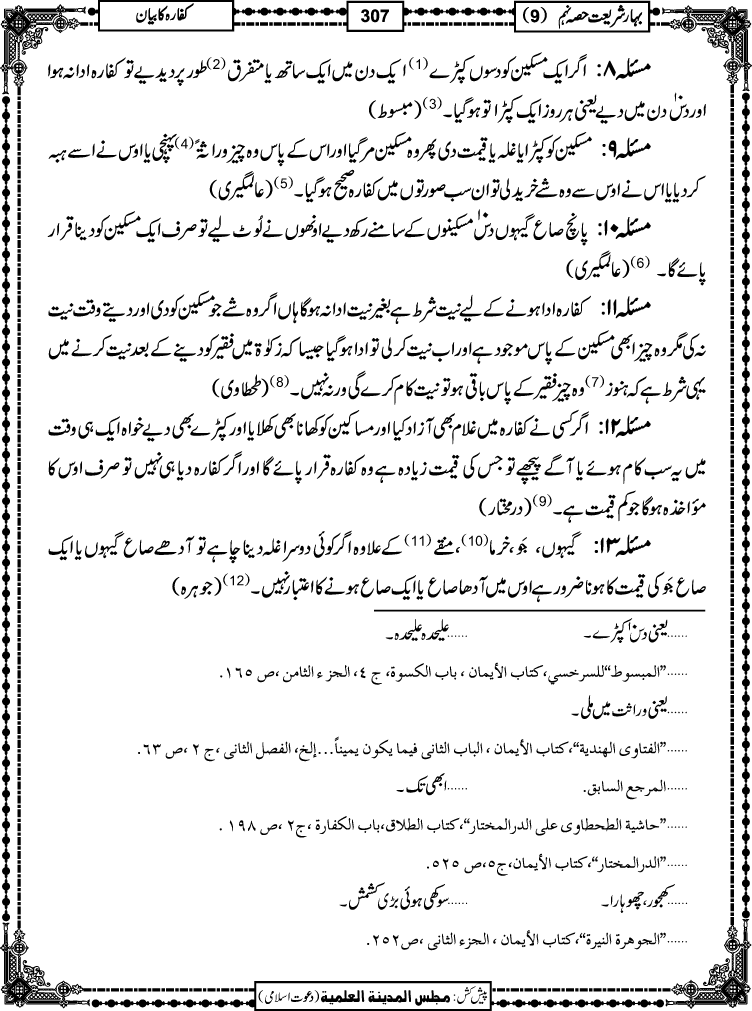 بہارِ شریعت حصہ نہم (9)
307
کفارہ کا بیان
مسئلہ ۸: اگر ایک مسکین کو دسوں کپڑے (1) ایک دن میں ایک ساتھ یا متفرق (2) طور پر دیدیے تو کفارہ ادا نہ ہوا
اور دس۱۰ دن میں دیے یعنی ہر روز ایک کپڑا تو ہوگیا۔ (3) (مبسوط)
مسئلہ ۹: مسکین کو کپڑا یا غلہ یا قیمت دی پھر وہ مسکین مر گیا اور اس کے پاس وہ چیز وراثۃً (4) پہنچی یا اوس نے اسے ہبہ
کر دیا یا اس نے اوس سے وہ شے خرید لی تو ان سب صورتوں میں کفارہ صحیح ہوگیا۔ (5) (عالمگیری)
مسئلہ ۱۰: پانچ صاع گیہوں دس۱۰ مسکینوں کے سامنے رکھ دیے اونھوں نے لُوٹ لیے تو صرف ایک مسکین کو دینا قرار
پائے گا۔ (6) (عالمگیری)
مسئلہ ۱۱: کفارہ ادا ہونے کے لیے نیت شرط ہے بغیر نیت ادا نہ ہوگا ہاں اگر وہ شے جو مسکین کو دی اور دیتے وقت نیت
نہ کی مگر وہ چیز ابھی مسکین کے پاس موجود ہے اور اب نیت کرلی تو ادا ہوگیا جیسا کہ زکوٰۃ میں فقیر کو دینے کے بعد نیت کرنے میں
یہی شرط ہے کہ ہنوز (7) وہ چیز فقیر کے پاس باقی ہو تو نیت کام کرے گی ورنہ نہیں۔ (8) (طحطاوی)
مسئلہ ۱۲: اگر کسی نے کفارہ میں غلام بھی آزاد کیا اور مساکین کو کھانا بھی کھلایا اور کپڑے بھی دیے خواہ ایک ہی وقت
میں یہ سب کام ہوئے یا آگے پیچھے تو جس کی قیمت زیادہ ہے وہ کفارہ قرار پائے گا اور اگر کفارہ دیا ہی نہیں تو صرف اوس کا
مؤاخذہ ہوگا جو کم قیمت ہے۔ (9) (درمختار)
مسئلہ ۱۳: گیہوں، جَو، خرما (10)، منقے (11) کے علاوہ اگر کوئی دوسرا غلہ دینا چاہے تو آدھے صاع گیہوں یا ایک
صاع جَو کی قیمت کا ہونا ضرور ہے اوس میں آدھا صاع یا ایک صاع ہونے کا اعتبار نہیں۔ (12) (جوہرہ)
......یعنی دس۱۰ کپڑے۔ ......علیحدہ علیحدہ۔
......”المبسوط“للسرخسي،کتاب الأیمان ، باب الکسوة، ج ٤، الجزء الثامن ،ص ١٦٥.
......یعنی وراثت میں ملی۔
......”الفتاوی الهندیة“،کتاب الأیمان ، الباب الثانی فیما یکون یمیناً...إلخ، الفصل الثانی ،ج ٢ ،ص ٦٣.
......المرجع السابق. ......ابھی تک۔
......”حاشیة الطحطاوی علی الدرالمختار“،کتاب الطلاق،باب الکفارة ،ج٢ ،ص ١٩٨ .
......”الدرالمختار“،کتاب الأیمان،ج٥،ص ٥٢٥.
......کھجور، چھوہارا۔ ......سوکھی ہوئی بڑی کشمش۔
......”الجوهرة النیرة“،کتاب الأیمان ، الجزء الثانی ،ص٢٥٢.
پیش کش: مجلس المدینة العلمیة (دعوت اسلامی)